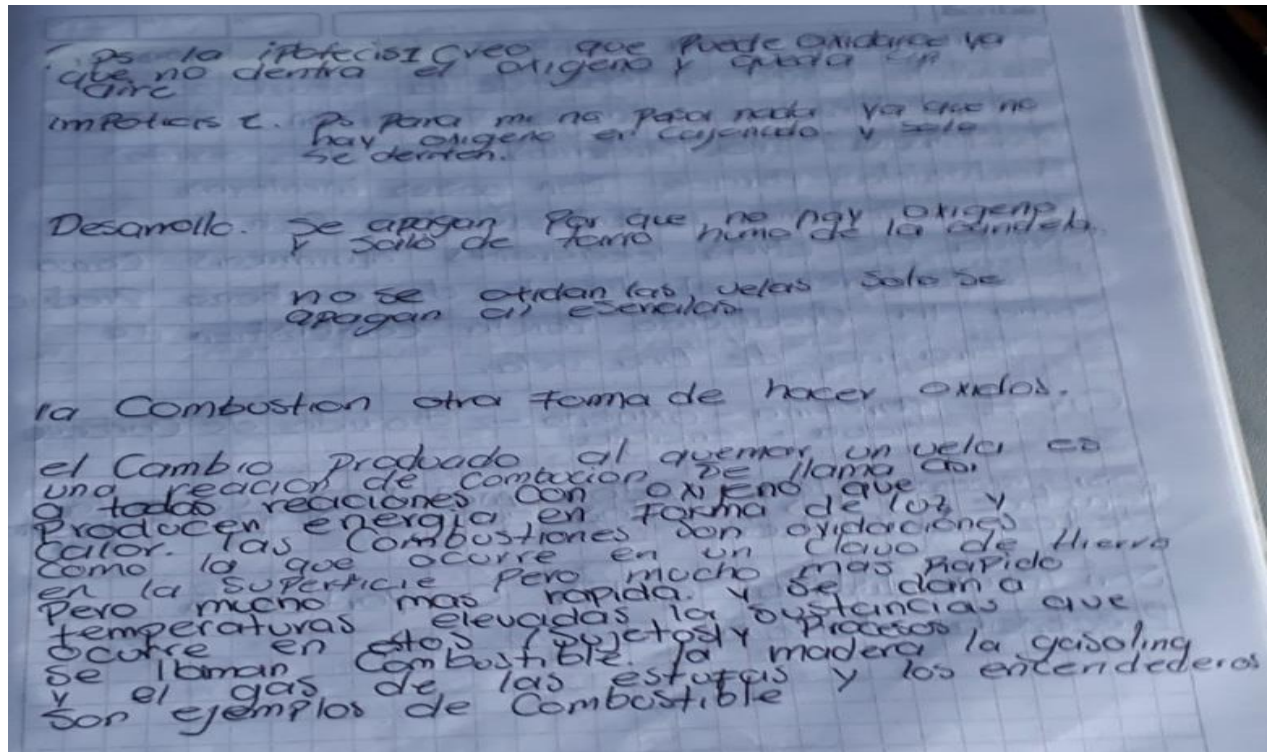 ps la ipotecis1 creo que puede oxidarce ya
que no dentra el oxigeno y queda sin
aire
impotecis 2. Ps para mi no pasa nada ya que no
hay oxigeno y solo
se derriten.
Desarrollo. Se apagan Por que no hay oxigeno
y salio de tanto humo de la candela.
no se oxidan las velas solo se
apagan
la Combustion otra forma de hacer oxidos.
el Cambio Producido al quemar un vela es
una reacion de combucion se llama asi
a todas reaciones con oxijeno que
Producen energia en forma de luz y
calor. las Combustiones son oxidaciones
como la que ocurre en un clavo de Hierro
en la superficie Pero mucho mas Rapido
Pero mucho mas rapida. y se dan a
temperaturas elevadas la sustancias que
ocurre en estos (sujetos) y Procesos
se llaman Combustible. la madera la gasolina
y el gas de las estufas y los encendederos
son ejemplos de Combustible